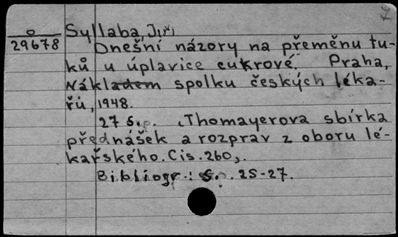 o
29678
Syllaba, Jiří
Dnešní názory na přeměnu tu-
ků u úplavice cukrové. Praha,
Nákladem spolku českých léka-
řů, 1948.
27 s. (Thomayerova sbírka
přednášek a rozprav z oboru lé-
kařského. Čis. 260).
Bibliogr.: S. 25-27.